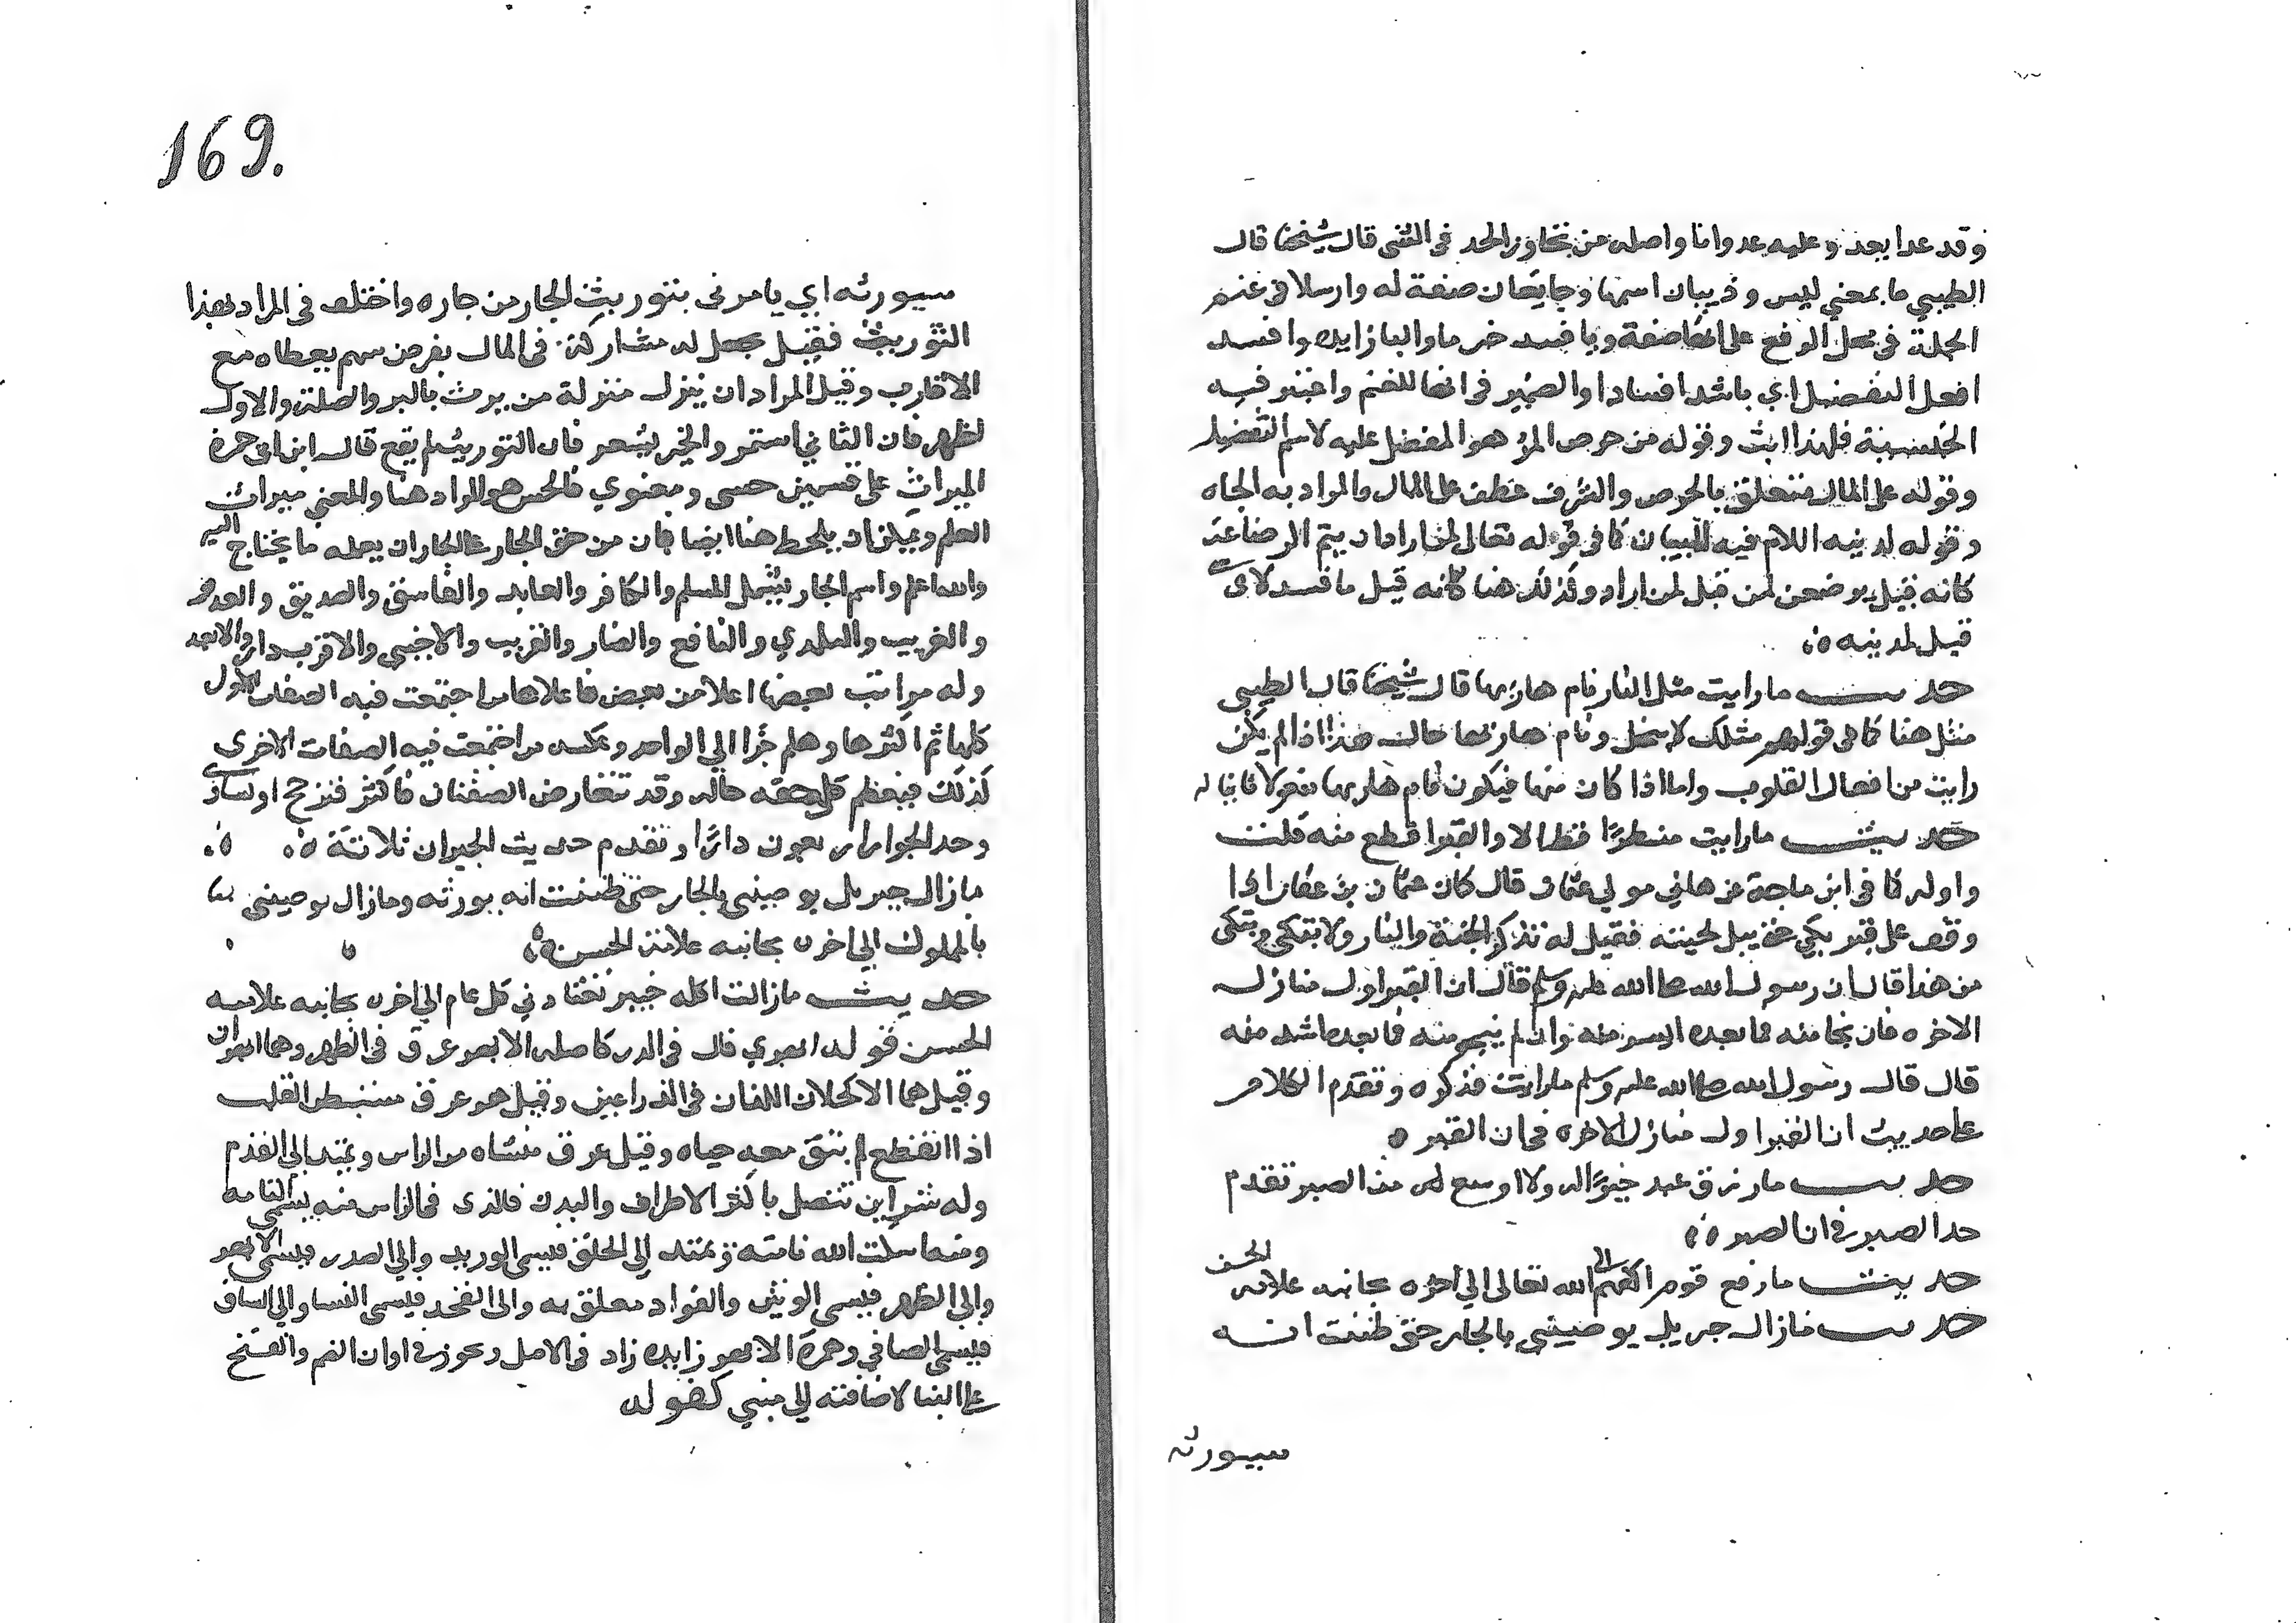 وقد عدا يعدو عليه عدوانا واصله من تجاوز الحد في الشى قال شيخنا قال
الطيبي ما بمعني ليس وذيبان اسمها وجايعان صفة له وارسلا في غنم
الجملة في محل الرفع على انها صفة وبافسد خبر ما والبا زايدة وافسد
افعل التفضيل اي باشد افسادا والضمير في انها للغنم واعتبر فيه
الجنسية فلهذا انث وقوله من حرص المرء هو المفضل عليه لاسم التفضيل
وقوله على المال متعلق بالحرص والشرف عطف على المال والمراد به الجاه
وقوله لدينه اللام فيه للبيان كما في قوله تعالى لمن اراد ان يتم الرضاعة
كانه قيل يرضعن لمن قيل لمن اراد وكذلك هنا كانه قيل ما فسد لاى شى
قيل لدينه ه
حديث ما رايت مثل النار نام هاربها قال شيخنا قال الطيبي
مثل هنا كما في قولهم مثلك لا يبخل ونام هاربها حال هذا اذا لم يكن
رايت من افعال القلوب واما اذا كان منها فيكون نام هاربها مفعولا ثانيا له
حديث ما رايت منظرا فظا الا والقبر افظع منه قلت
واوله كما في ابن ماجة عن هاني مولي عثمان قال كان عثمان بن عفان اذا
وقف على قبر بكي حتى يبل لحيته فقيل له تذكر الجنة والنار ولا تبكى وتبكى
من هذا قال ان رسول الله صلى الله عليه وسلم قال ان القبر اول منازل
الاخره فان نجا منه فما بعده ايسر منه وان لم ينج منه فما بعده اشد منه
قال قال رسول الله صلى الله عليه وسلم ما رايت فذكره وتقدم الكلام
على حديث ان القبر اول منازل الاخره في ان القبر ه
حديث ما رزق عبد خيرا له ولا اوسع له من الصبر تقدم
حد الصبر في ان الصبر ه
حديث ما رفع قوم اكفهم الى الله تعالى الي اخره بجانبه علامة الحسن
حديث ما زال جبريل يوصيني بالجار حتى ظننت انه
سيورثه
169.
سيورثه اي يامرنى بتوريث الجار من جاره واختلف في المراد بهذا
التوريث فقيل يجعل له مشاركة في المال بفرض سهم يعطاه مع
الاقارب وقيل المراد ان ينزل منزلة من يرث بالبر والصلة والاول
اظهر فان الثاني استمر والخبر يشعر فان التوريث لم يقع قال ابن ابى جمرة
الميراث على قسمين حسى ومعنوي فالحسي هو المراد هنا والمعنى ميراث
العلم ويمكن ان يلحظ هنا ايضا فان من حق الجار على الجار ان يعلمه ما يحتاج اليه
والله اعلم واسم الجار يشمل المسلم والكافر والعابد والفاسق والصديق والعدو
والغريب والبلدي والنافع والضار والقريب والاجنبى والاقرب دارا والابعد
وله مراتب بعضها اعلا من بعض فاعلاها من اجتمعت فيه الصفات الاول
كلها ثم اكثرها وهلم جرا الي الواحد وعكسه من اجتمعت فيه الصفات الاخرى
كذلك فيعطى كل حقه حاله وقد تتعارض الصفتان فاكثر فترجح او تساوى
وحد الجوار اربعون دارا وتقدم حديث الجيران ثلاثة ه
ما زال جبريل يوصينى بالجار حتى ظننت انه يورثه وما زال يوصينى
بالمملوك الي اخره بجانبه علامة الحسن ه
حديث ما زالت اكلة خيبر تعتادني كل عام الي اخره بجانبه علامة
الحسن قوله ابهري قال في الدر كاصله الابهر عرق في الظهر وهما ابهران
وقيل هما الاكحلان اللذان في الذراعين وقيل هو عرق مستبطن القلب
اذا انقطع لم تبق معه حياه وقيل عرق منشاه من الراس ويمتد الي القدم
وله شرايين تتصل باكثر الاطراف والبدن فالذى في الراس منه يسمى النامة
ومنه اسكت الله نامته ويمتد الي الحلق فيسمى الوريد والي الصدر فيسمى الابهر
والى الظهر فيسمى الوتين والفواد معلق به والى الفخد فيسمى النسا والي الساق
فيسمى الصافن وهمزة الابهر زايدة زاد في الاصل ويجوز في اوان الضم والفتح
على البنا لاضافته الي مبني كقوله